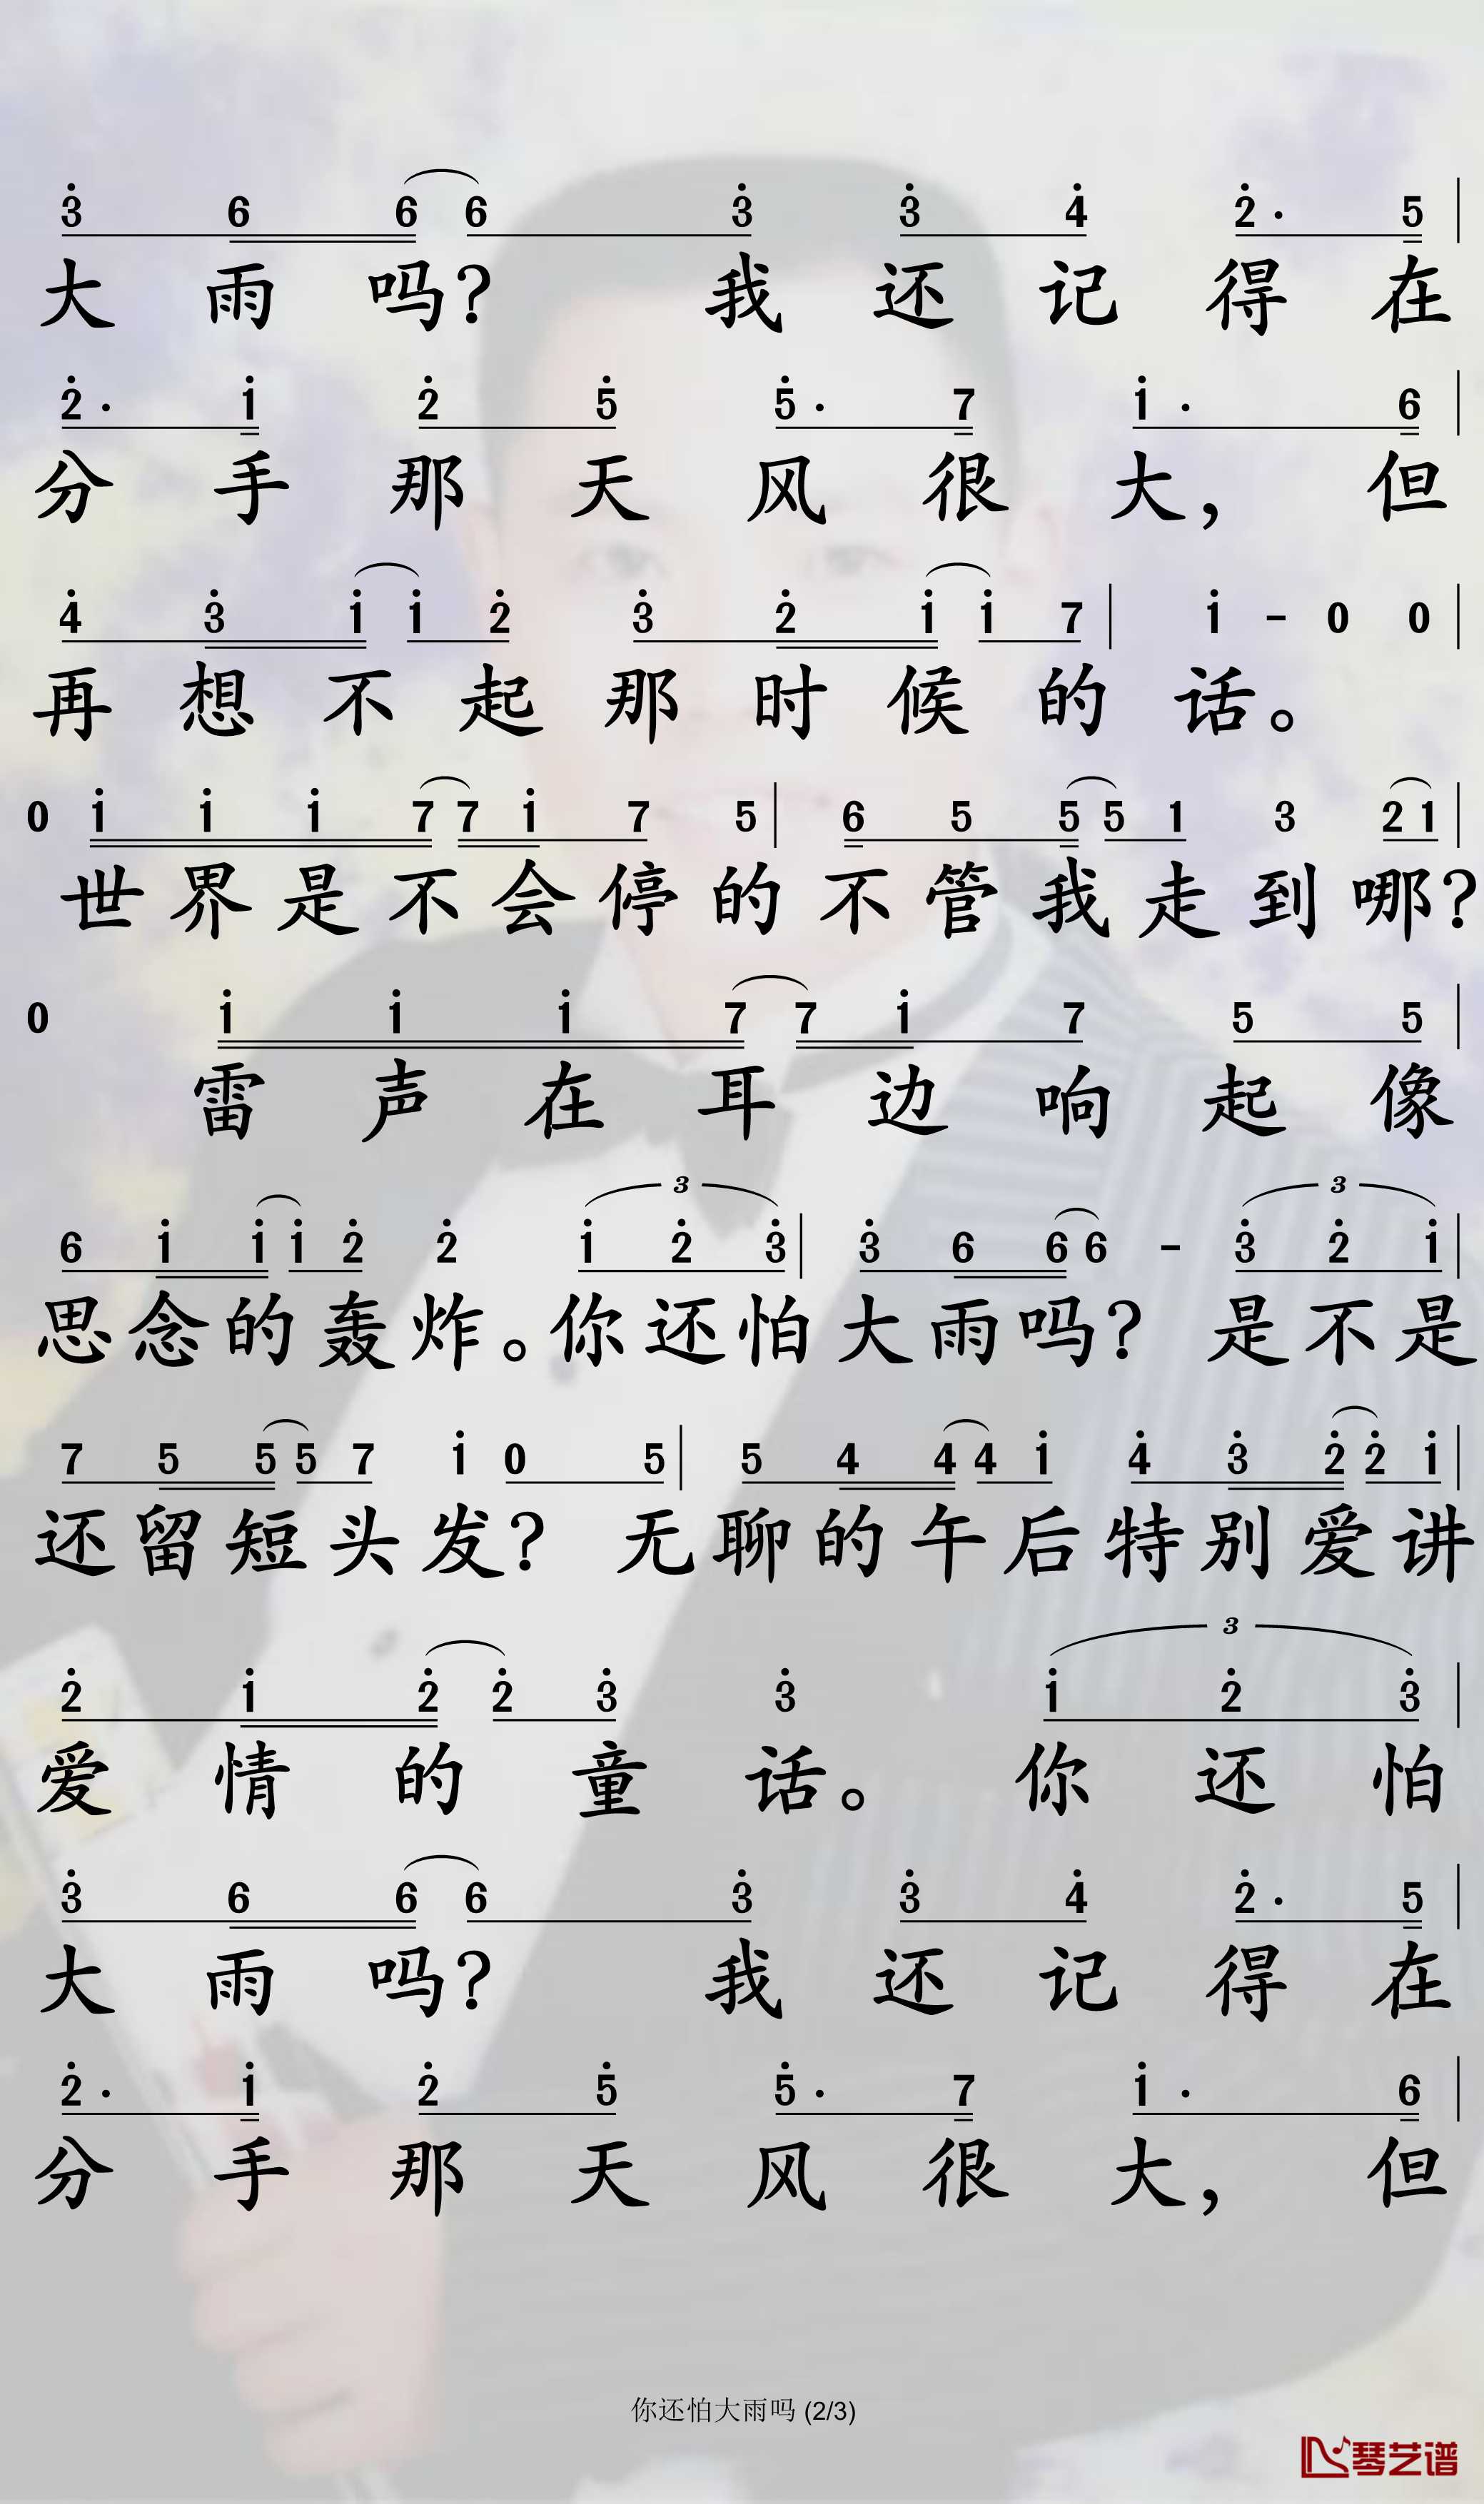 3̇ 6 6 6 3̇ 3̇ 4̇ 2̇· 5 |
大雨吗？ 我还记得在
2̇· 1̇ 2̇ 5̇ 5̇· 7 1̇· 6 |
分手那天风很大，但
4̇ 3̇ 1̇ 1̇ 2̇ 3̇ 2̇ 1̇ 1̇ 7 | 1̇ - 0 0 |
再想不起那时候的话。
0 1̇ 1̇ 1̇ 7 7 1̇ 7 5 | 6 5 5 5 1 3 2 1 |
世界是不会停的不管我走到哪？
0 1̇ 1̇ 1̇ 7 7 1̇ 7 5 5 |
雷声在耳边响起像
3 3
6 1̇ 1̇ 1̇ 2̇ 2̇ 1̇ 2̇ 3̇ | 3̇ 6 6 6 - 3̇ 2̇ 1̇ |
思念的轰炸。你还怕大雨吗？ 是不是
7 5 5 5 7 1̇ 0 5 | 5 4 4 4 1̇ 4̇ 3̇ 2̇ 2̇ 1̇ |
还留短头发？ 无聊的午后特别爱讲
3
2̇ 1̇ 2̇ 2̇ 3̇ 3̇ 1̇ 2̇ 3̇ |
爱情的童话。 你还怕
3̇ 6 6 6 3̇ 3̇ 4̇ 2̇· 5 |
大雨吗？ 我还记得在
2̇· 1̇ 2̇ 5̇ 5̇· 7 1̇· 6 |
分手那天风很大，但
你还怕大雨吗 (2/3)
琴艺谱